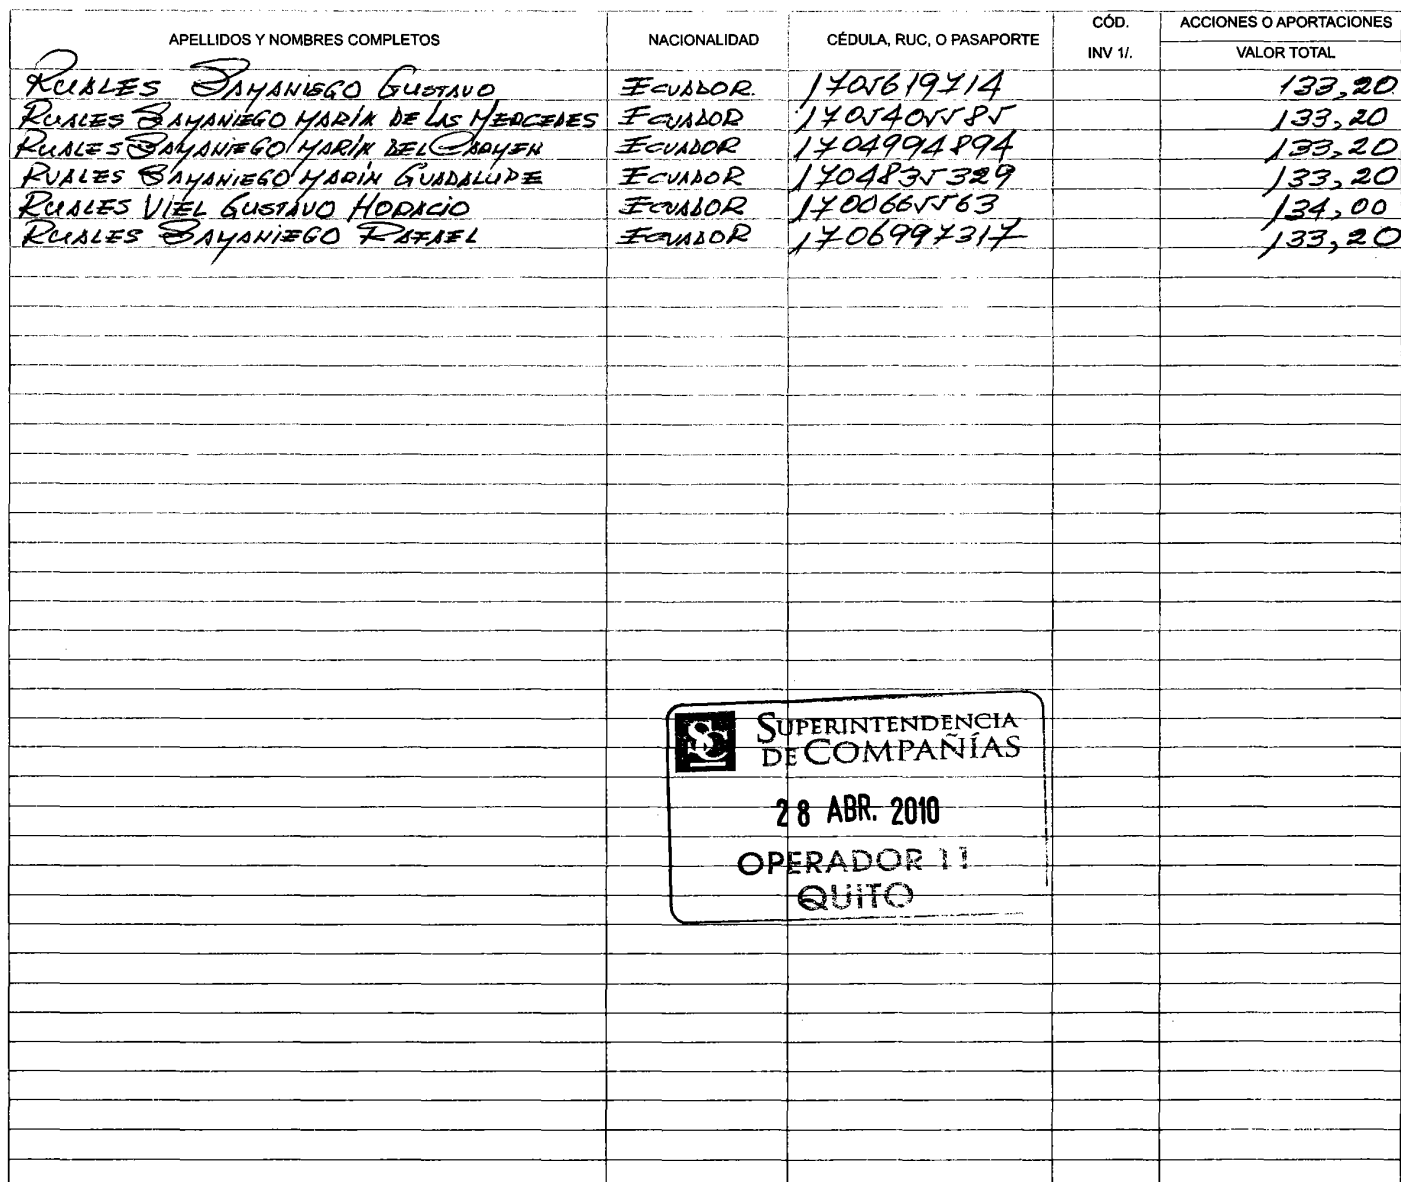 APELLIDOS Y NOMBRES COMPLETOS NACIONALIDAD CÉDULA, RUC, O PASAPORTE CÓD. INV 1/. ACCIONES O APORTACIONES VALOR TOTAL
RUALES SAMANIEGO GUSTAVO ECUADOR. 1705619714 133,20
RUALES SAMANIEGO MARÍA DE LAS MERCEDES ECUADOR 1705405585 133,20
RUALES SAMANIEGO MARÍA DEL CARMEN ECUADOR 1704994894 133,20
RUALES SAMANIEGO MARÍA GUADALUPE ECUADOR 1704835329 133,20
RUALES VIEL GUSTAVO HORACIO ECUADOR 1700665563 134,00
RUALES SAMANIEGO RAFAEL ECUADOR 1706997317 133,20
SC SUPERINTENDENCIA
DE COMPAÑÍAS
28 ABR. 2010
OPERADOR 11
QUITO